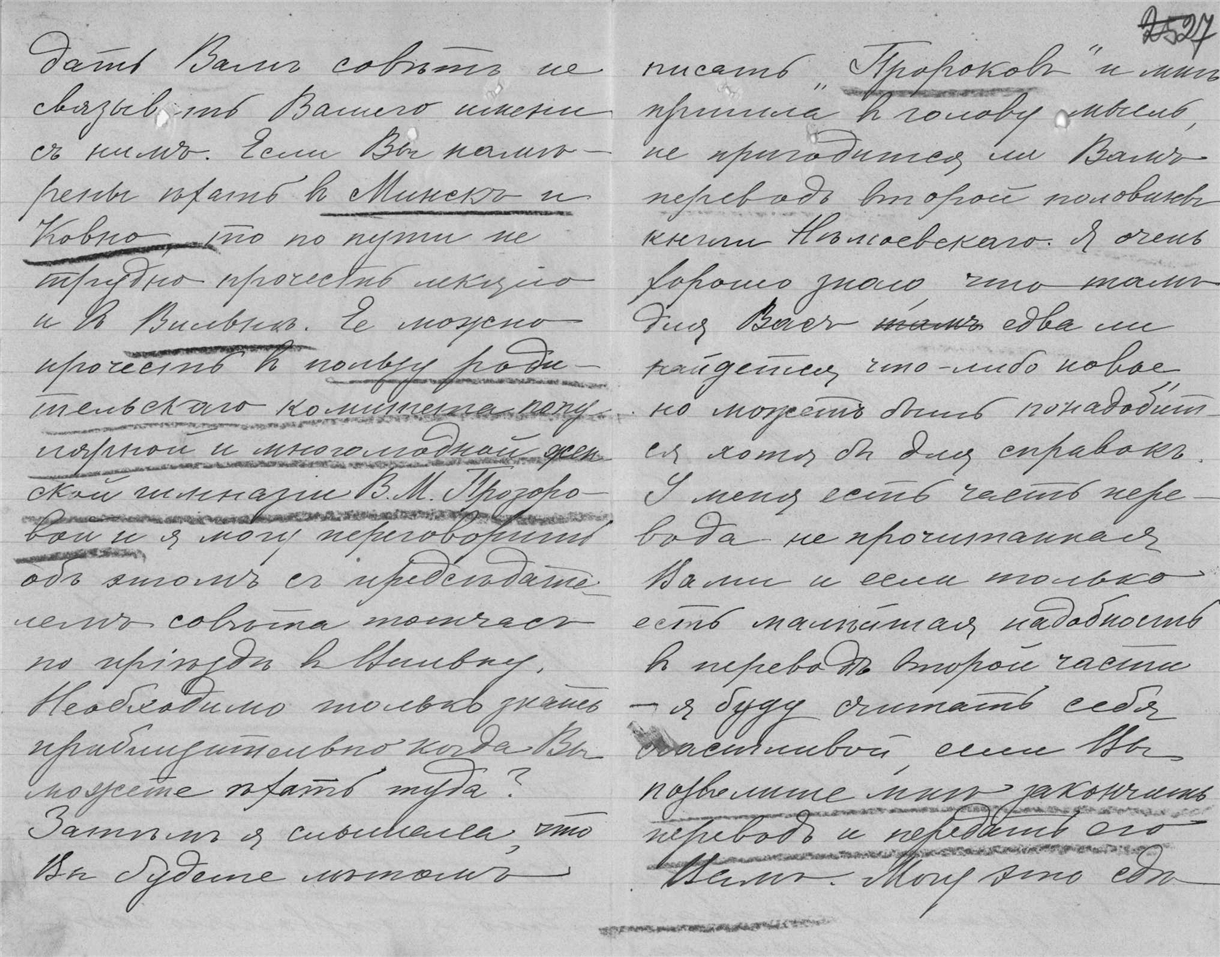 дать Вамъ совѣтъ не
связывать Вашего имени
съ нимъ. Если Вы намѣ-
рены ѣхать въ Минскъ и
Ковно, то по пути не
трудно прочесть лекцію
и въ Вильнѣ. Ее можно
прочесть въ пользу роди-
тельскаго комитета попу
лярной и многолюдной жен
ской гимназіи В.М. Прозоро-
вой и я могу переговорить
объ этомъ съ предсѣдате-
лемъ совѣта тотчасъ
по пріѣздѣ въ Вильну.
Необходимо только знать
приблизительно когда Вы
можете ѣхать туда?
Затѣмъ я слышала, что
Вы будете лѣтомъ
2527
писать „Пророковъ" и мнѣ
пришла въ голову мысль,
не пригодится ли Вамъ
переводъ второй половины
книги Нѣмоевскаго. Я очень
хорошо знаю, что тамъ
для Васъ тамъ едва ли
найдется что-либо новое,
но можетъ быть понадобит
ся хотя бы для справокъ.
У меня есть часть пере-
вода не прочитанная
Вами и если только
есть малѣйшая надобность
въ переводѣ второй части
– я буду считать себя
счастливой, если Вы
позволите мнѣ закончить
переводъ и передать его
Вамъ. Могу это сдѣ